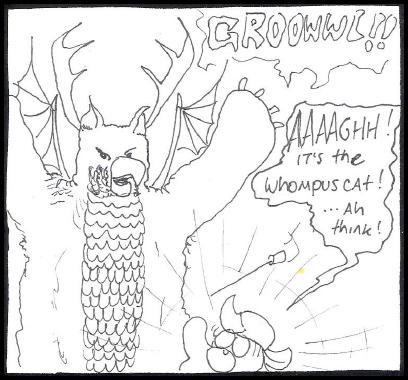 GROOWWL!!
AAAAGHH!
IT'S the
whompus cat!
...Ah
think!